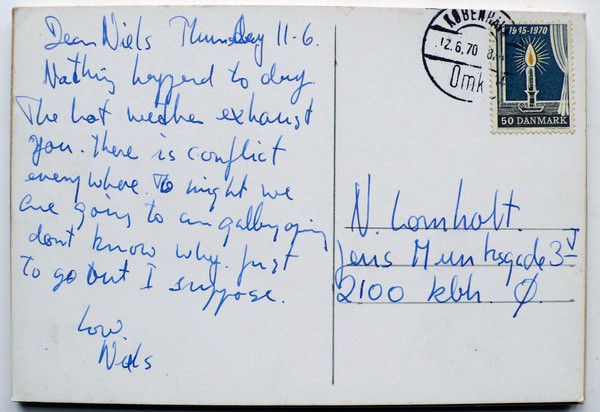 Dear Niels Thursday 11-6.
Nothing happend to day
The hot weather exhaust
you. There is conflict
everywhere. To night we
are going to an galleryoping
dont know why. just
to go but I suppose.
Low.
Niels
KØBENHAVN
12.6.70
Omk
1945-1970
50 DANMARK
N. Lomholt.
Jens Munksgade 3 V
2100 Kbh. Ø.